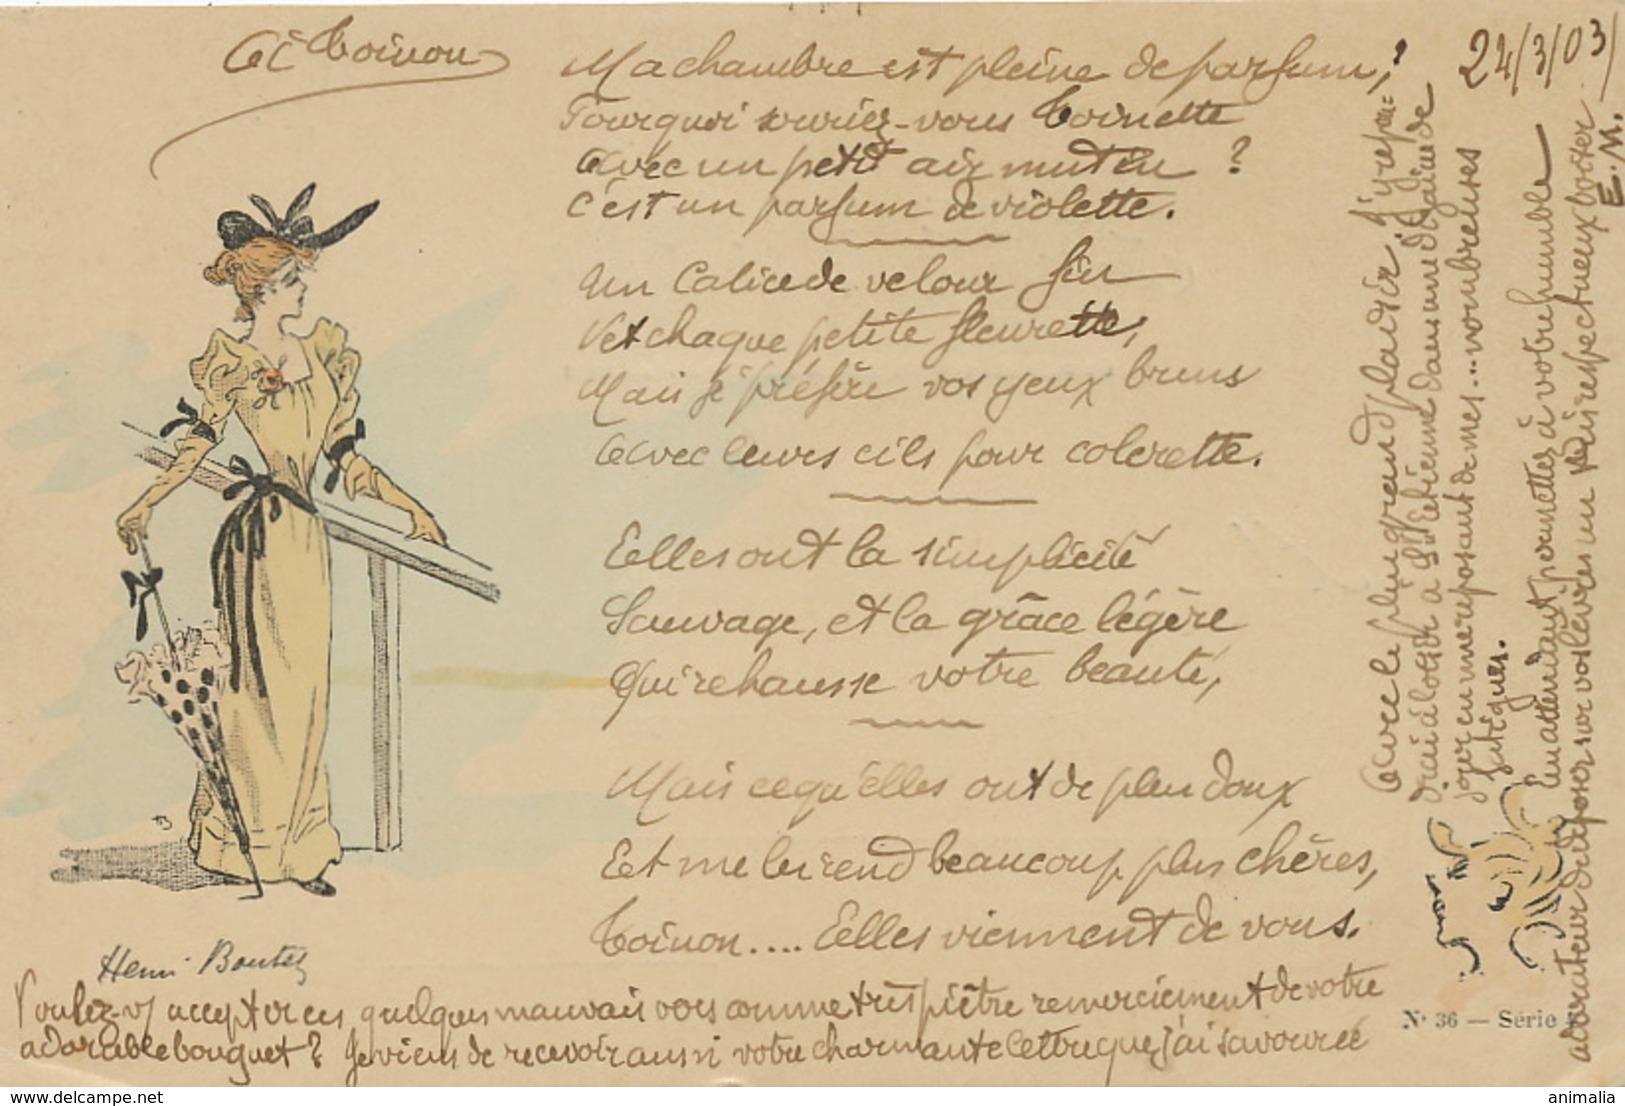 A Toinon
24/3/03
Ma chambre est pleine de parfum,
Pourquoi souriez-vous Toinette
Avec un petit air mutin ?
C'est un parfum de violette.
Un Calice de velour fin
Vet chaque petite fleurette,
Mais je préfère vos yeux bruns
Avec leurs cils pour colerette.
Elles ont la simplicité
Sauvage, et la grâce légère
Qui rehausse votre beauté,
Mais ce qu'elles ont de plus doux
Et me les rend beaucoup plus chères,
Toinon.... Elles viennent de vous.
Henri Boutet
Voulez-vs accepter ces quelques mauvais vers comme très piètre remerciement de votre
adorable bouquet ? Je viens de recevoir aussi votre charmante lettre que j'ai savourée
avec le plus grand plaisir. J'y répon=
drai à loisir à St Etienne dans une dizaine de
jours en me reposant de mes... nombreuses
fatigues.
En attendant permettez à votre humble
adorateur de déposer sur vos lèvres un respectueux baiser
E. M.
N° 36 — Série
delcampe.net
animalia